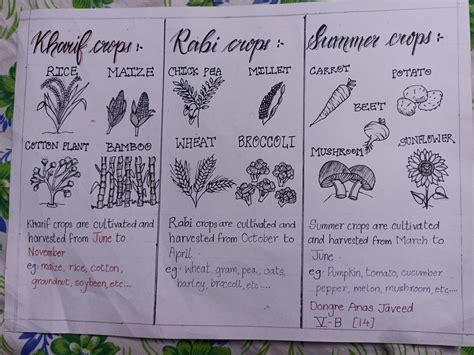 Kharif crops :-
RICE
MAIZE
COTTON PLANT
BAMBOO
Kharif crops are cultivated and
harvested from June to
November
eg: maize, rice, cotton,
groundnut, soybeen, etc...
Rabi crops :-
CHICK PEA
MILLET
WHEAT
BROCCOLI
Rabi crops are cultivated and
harvested from October to
April.
eg: wheat, gram, pea, oats,
barley, broccoli, etc....
Summer crops :-
CARROT
POTATO
BEET
MUSHROOM
SUNFLOWER
Summer crops are cultivated
and harvested from March to
June.
eg: Pumpkin, tomato, cucumber
pepper, melon, mushroom, etc....
Dongre Anas Javeed
V-B [14]